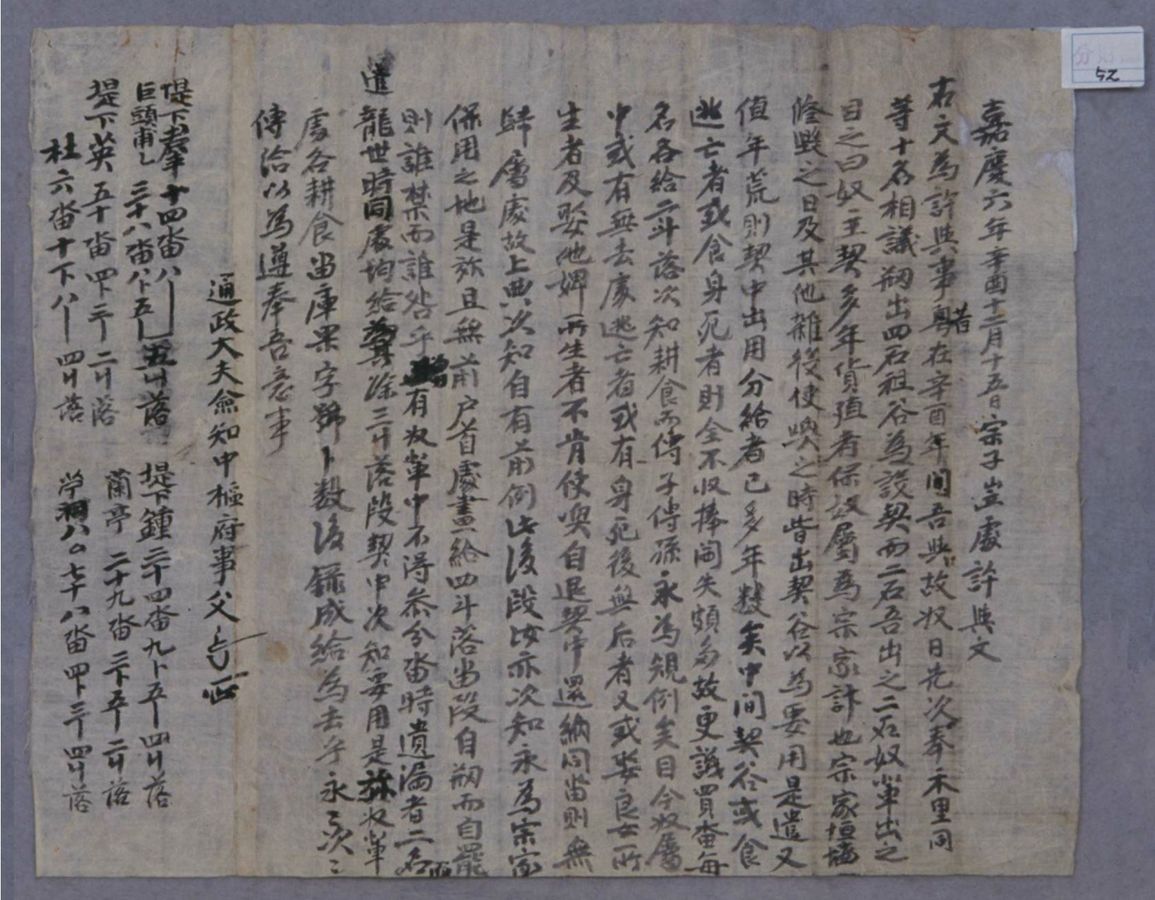 嘉慶六年辛酉十二月十五日宗子 處許與文
右文爲許與事粤在昔辛酉年間吾與故奴日先次奉禾里同
等十名相議刱出四石租谷爲設契而二石吾出之二石奴輩出之
目之曰奴主契多年貨殖者保奴屬爲宗家計也宗家垣墻
修毁之日及其他雜役使喚之時皆出契谷以爲要用是遣又
値年荒則契中出用分給者已多年數矣中間契谷或食
逃亡者或食身死者則全不收捧閪失頗多故更議買畓每
名各給二斗落次知耕食而傳子傳孫永爲規例矣目今奴屬
中或有無去處逃亡者或有身死後無后者又或娶良女所
生者及娶他婢所生者不肯使喚自退契中還納同畓則無
歸屬處故上典次知自有前例此後段置亦次知永爲宗家
保用之地是旀且無前戶首處畫給四斗落畓段自刱而自罷
則誰禁而誰咎乎 有奴輩中不得參分畓時遺漏者二名
遣龍世時同處均給 其餘三斗落段契中次知要用是旀奴輩
處各耕食畓庫果字號卜數後錄成給爲去乎永永次次
傳洽以爲遵奉吾意事
通政大夫僉知中樞府事父
堤下 十四畓 五斗落
巨頭甫 三十八畓 卜五
堤下英五十畓四卜二 二斗落
杜六畓十下 四斗落
堤下鍾二十四畓九卜五 四斗落
蘭亭二十九畓 卜五 二斗落
学 七十八畓四卜三 四斗落
52